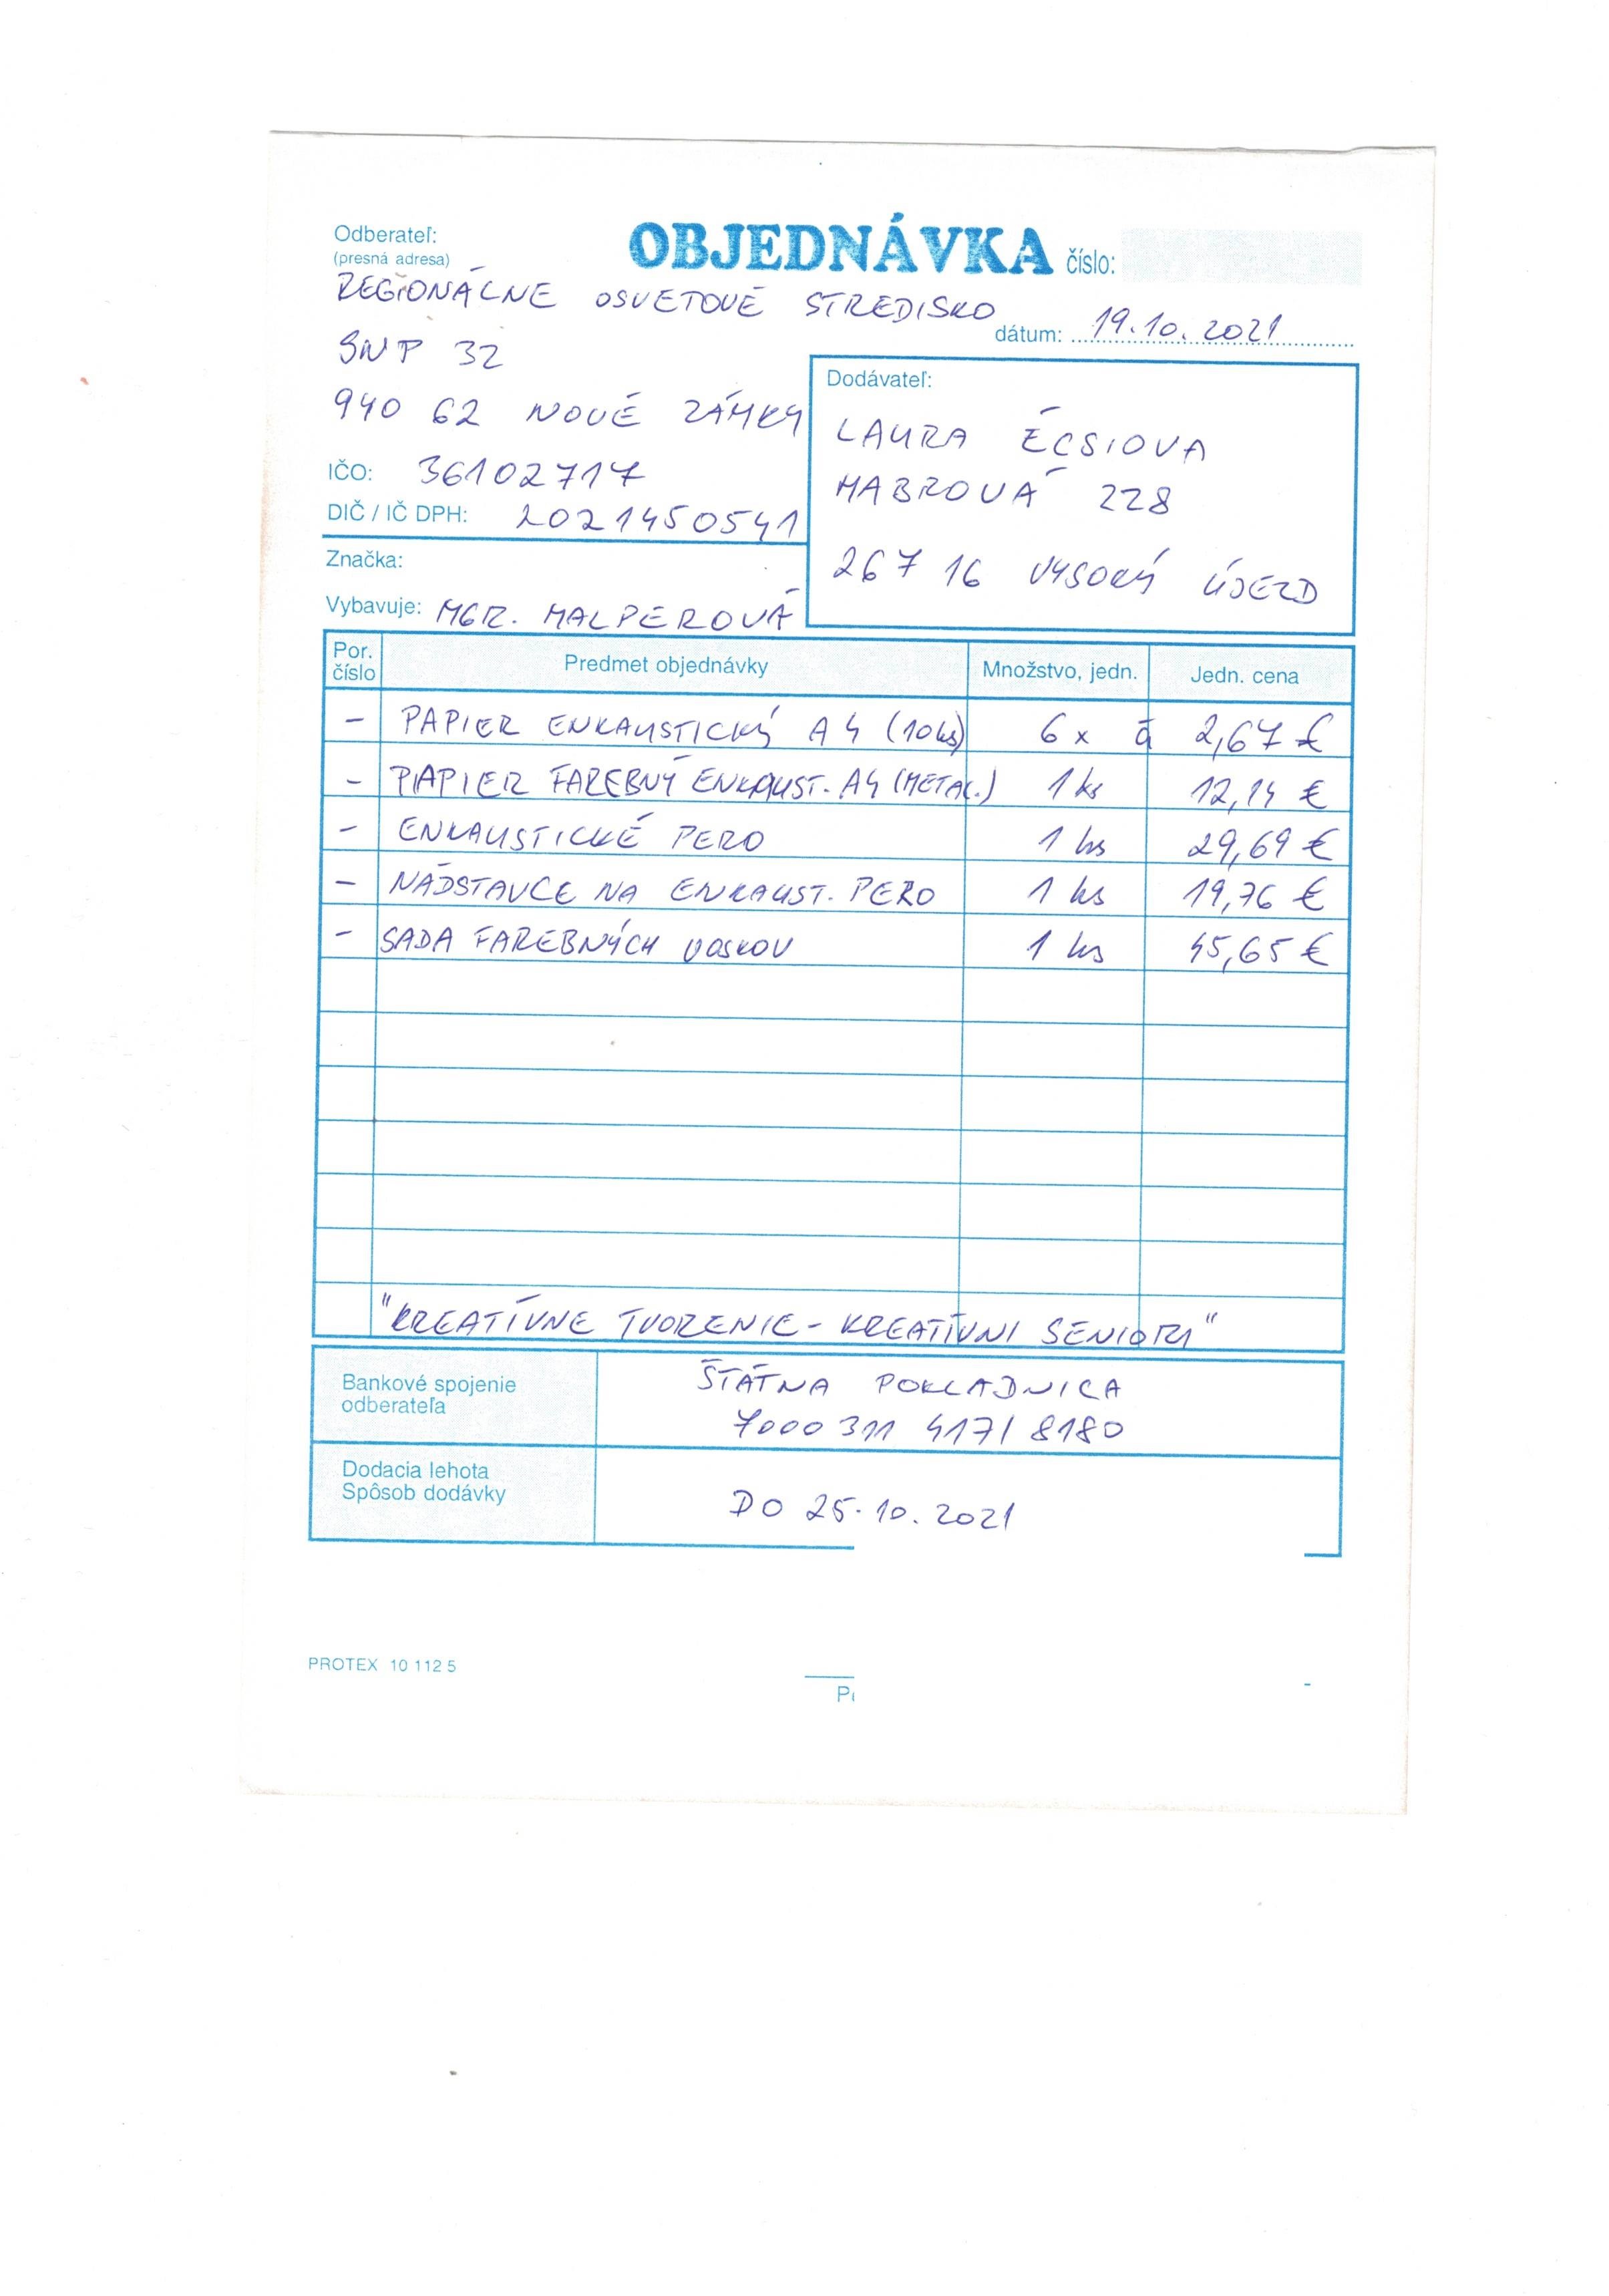 Odberateľ:
(presná adresa)
OBJEDNÁVKA číslo:
REGIONÁLNE OSVETOVÉ STREDISKO
dátum: 19.10.2021
SNP 32
940 62 NOVÉ ZÁMKY
IČO: 36102717
DIČ / IČ DPH: 2021450541
Značka:
Vybavuje: MGR. MALPEROVÁ
Dodávateľ:
LAURA ÉCSIOVA
HABROVÁ 228
267 16 VYSOKÝ ÚJEZD
Por. číslo Predmet objednávky Množstvo, jedn. Jedn. cena
– PAPIER ENKAUSTICKÝ A4 (10 ks) 6 x á 2,67 €
– PAPIER FAREBNÝ ENKAUST. A4 (METAL.) 1 ks 12,14 €
– ENKAUSTICKÉ PERO 1 ks 29,69 €
– NADSTAVCE NA ENKAUST. PERO 1 ks 19,76 €
– SADA FAREBNÝCH VOSKOV 1 ks 45,65 €
"KREATÍVNE TVORENIE - KREATÍVNI SENIORI"
Bankové spojenie
odberateľa
ŠTÁTNA POKLADNICA
7000 311 417/ 8180
Dodacia lehota
Spôsob dodávky
DO 25.10.2021
PROTEX 10 112 5